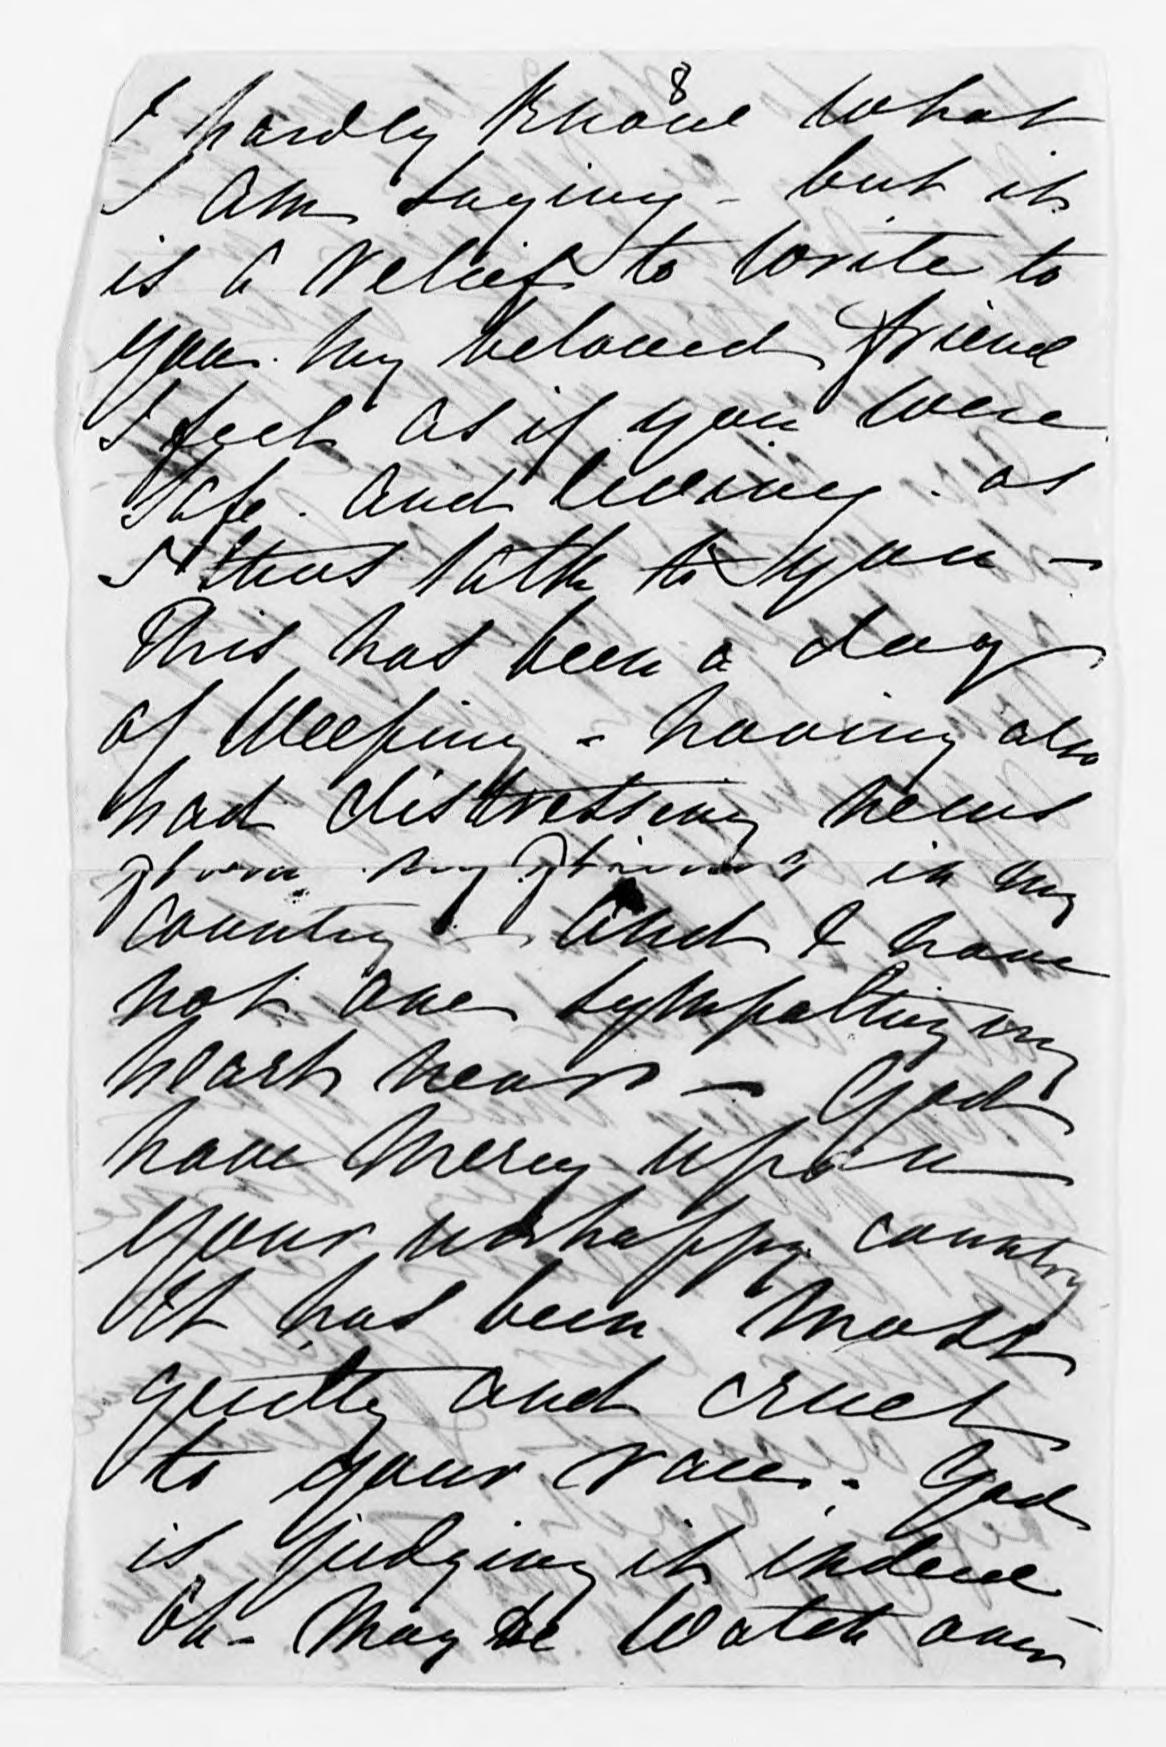 8
I hardly know what
I am saying - but it
is a relief to write to
you my beloved friend
I feel as if you were
safe. and living. as
I thus talk to you -
This has been a day
of weeping - having also
had distressing news
from my friends in my
country - and I have
not one sympathizing
heart near - God
have mercy upon
your unhappy country
It has been most
guilty and cruel
to your race. God
is judging it indeed
Oh - may He watch over